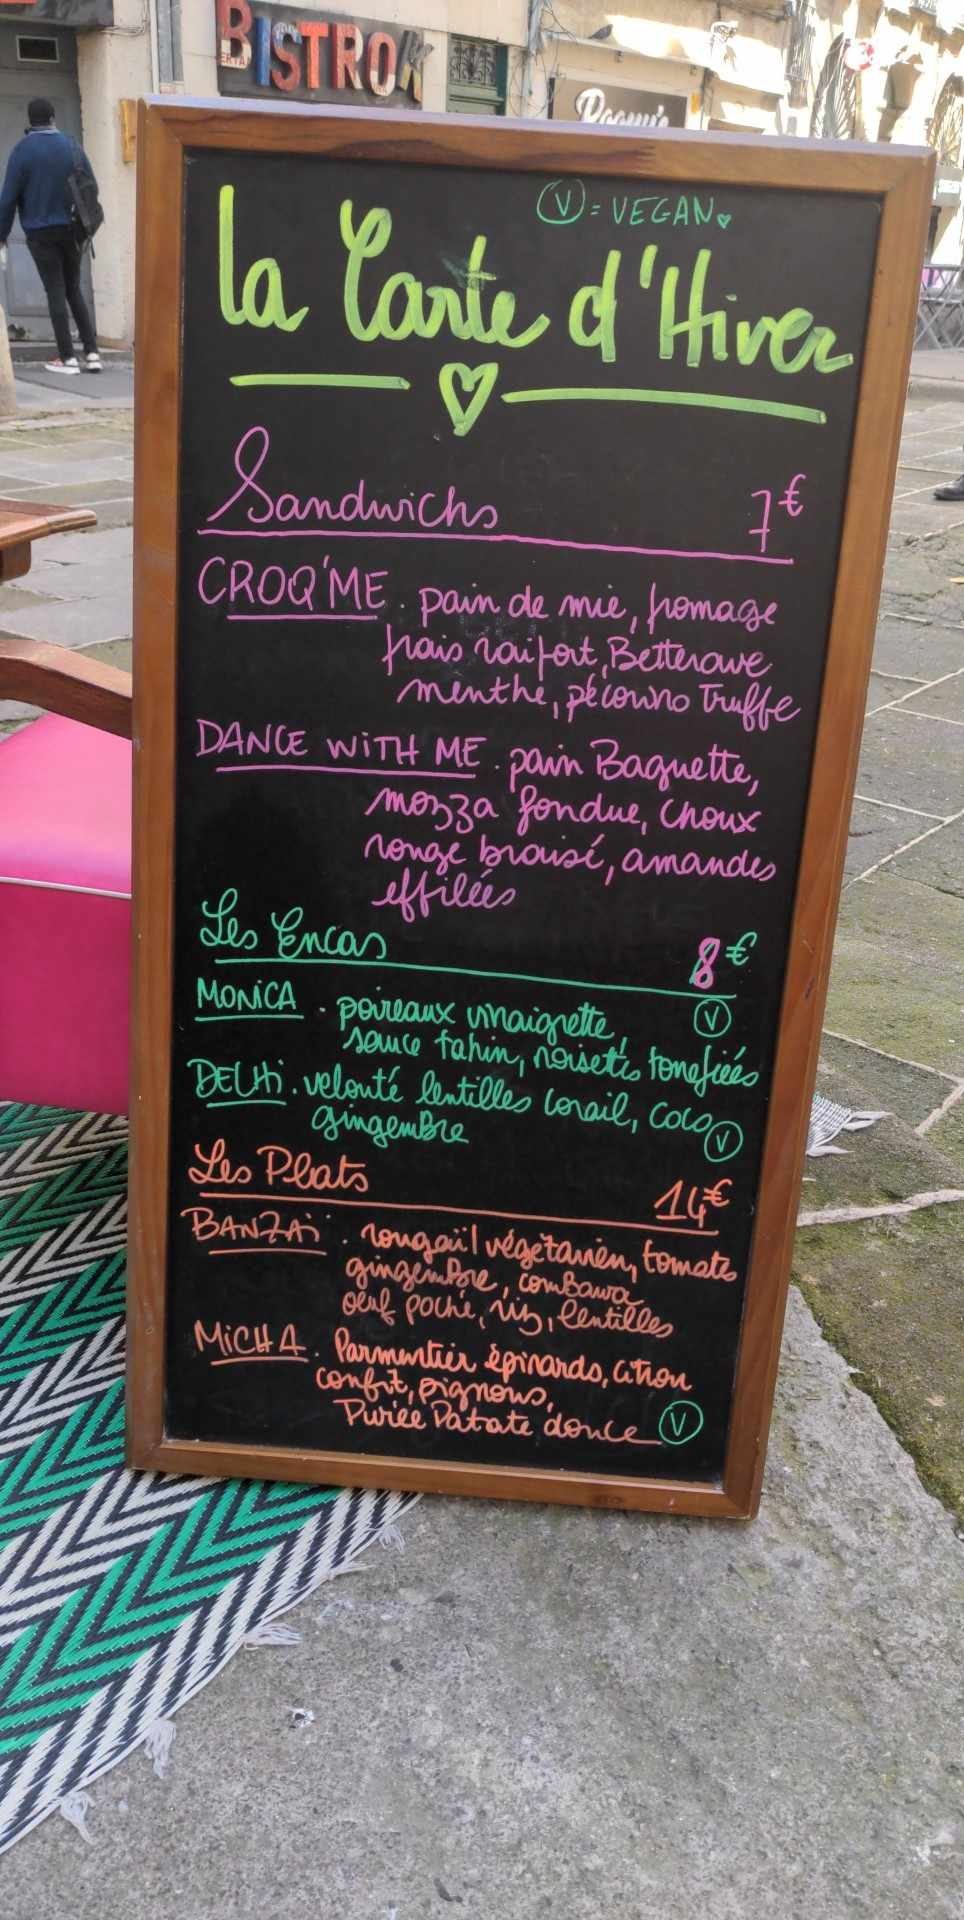 BISTROK
V = VEGAN
La Carte d'Hiver
Sandwichs 7€
CROQ'ME . pain de mie, fromage
frais raifort, Betterave
menthe, pécorino Truffe
DANCE WITH ME . pain Baguette,
mozza fondue, choux
rouge braisé, amandes
effilées
Les Encas 8€
MONICA . poireaux vinaigrette, V
sauce tahin, noisettes torréfiées
DELHI . velouté lentilles corail, coco
gingembre V
Les Plats 14€
BANZAÏ . rougail végétarien, tomate
gingembre, combawa
œuf poché, riz, lentilles
MICHA . Parmentier épinards, citron
confit, pignons,
Purée Patate douce V